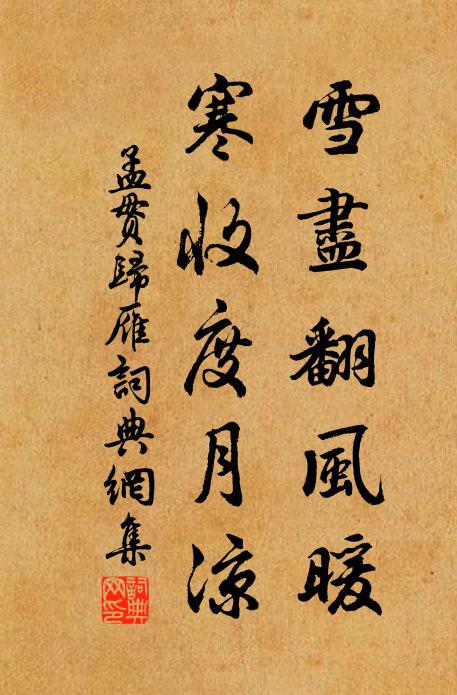 雪盡翻風暖
寒收度月涼
孟貫歸雁詞典網集
詞典網印